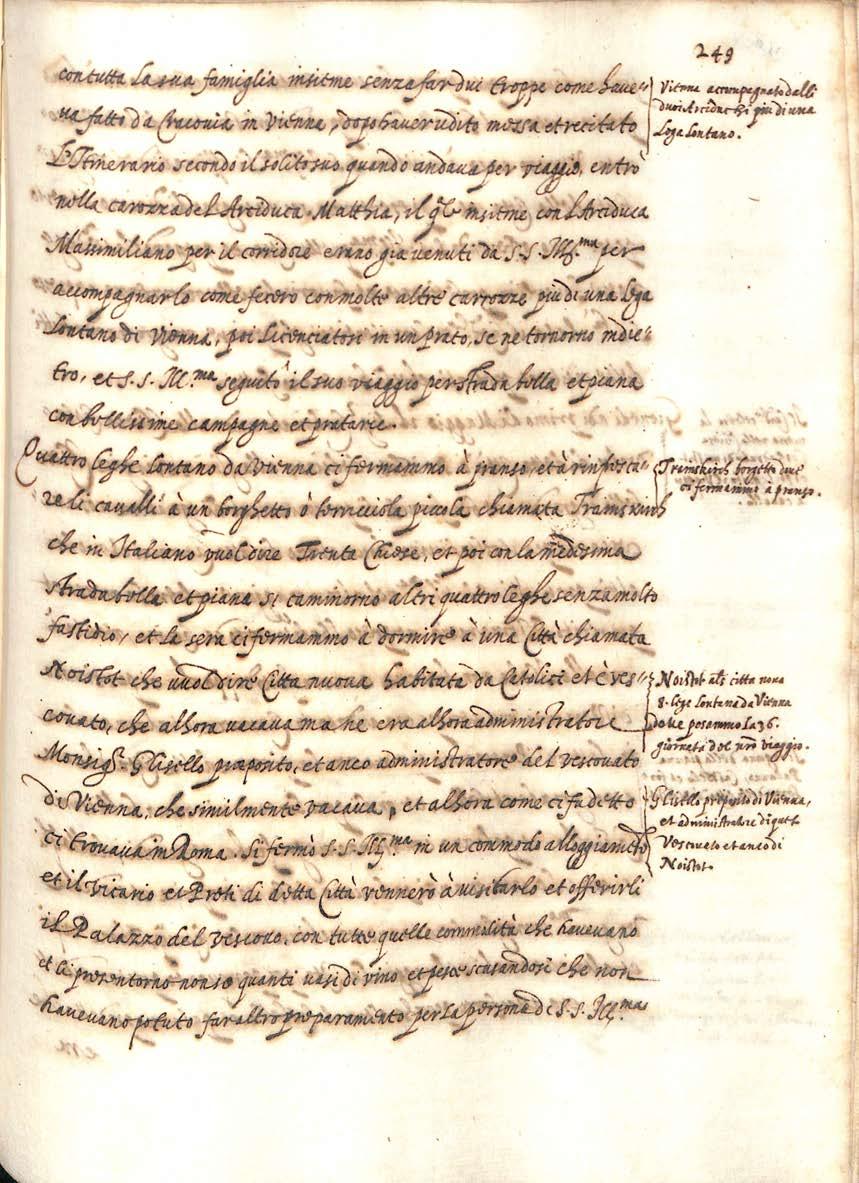 249
con tutta la sua famiglia insieme senza far dui troppe come have=
va fatto da Cracovia in Vienna, dopo haver udito messa et recitato
l'Itinerario secondo il solito suo quando andava per viaggio, entrò
nella carozza del Arciduca Matthia, il qle insieme con l'Arciduca
Massimiliano per il corridore erano gia venuti da S. S. Ill.ma per
accompagnarlo come fecero con molte altre carrozze piu di una lega
lontano di Vienna, poi licenciatosi in un prato, se ne tornorno indie=
tro, et S. S. Ill.ma seguitò il suo viaggio per strada bella et piana
con bellissime campagne et pratarie.
Quattro leghe lontano da Vienna ci fermammo à pranso, et à rinfresca=
re li cavalli à un borghetto ò terricciola picola chiamata Tramskirch
che in Italiano vuol dire Trenta Chiese, et poi con la medesima
strada bella et piana si caminorno altri quattro leghe senza molto
fastidio, et la sera ci fermammo à dormire à una Città chiamata
Noistot che vuol dire Citta nuova habitata da Catolici et è ves=
covato, che alhora vacava ma ne era alhora administratore
Monsigr. Glisello præposito, et anco administratore del vescovato
di Vienna, che similmente vacava, et alhora come ci fu detto
ci trovava in Roma. Si fermò S. S. Ill.ma in un commodo alloggiamento
et il Vicario et Preti di detta Città vennerò à visitarlo et offerirli
il Palazzo del vescovo, con tutte quelle commodità che havevano
et li presentorno non so quanti vasi di vino et pesce scusandosi che non
havevano potuto far altro preparamento per la persona di S. S. Ill.ma
Vienna accompagnato dalli
duoi Arciduchi piu di una
Lega lontano.
Tramskirch borgetto dove
ci fermammo à pranso.
Noistot als citta nova
8. lege lontana da Vienna
dove posammo la 36.
giornata del nro viaggio.
Glisello præposito di Vienna,
et administratore di quel
Vescovato et anco di
Noistot.